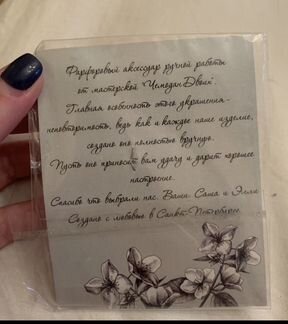 Фарфоровый аксессуар ручной работы
от мастерской "Чемодан Двоих".
Главная особенность этого украшения-
неповторимость, ведь как и каждое наше изделие,
создано оно полностью вручную.
Пусть оно приносит вам удачу и дарит хорошее
настроение.
Спасибо что выбрали нас. Ваши Саша и Элли
Создано с любовью в Санкт-Петербурге